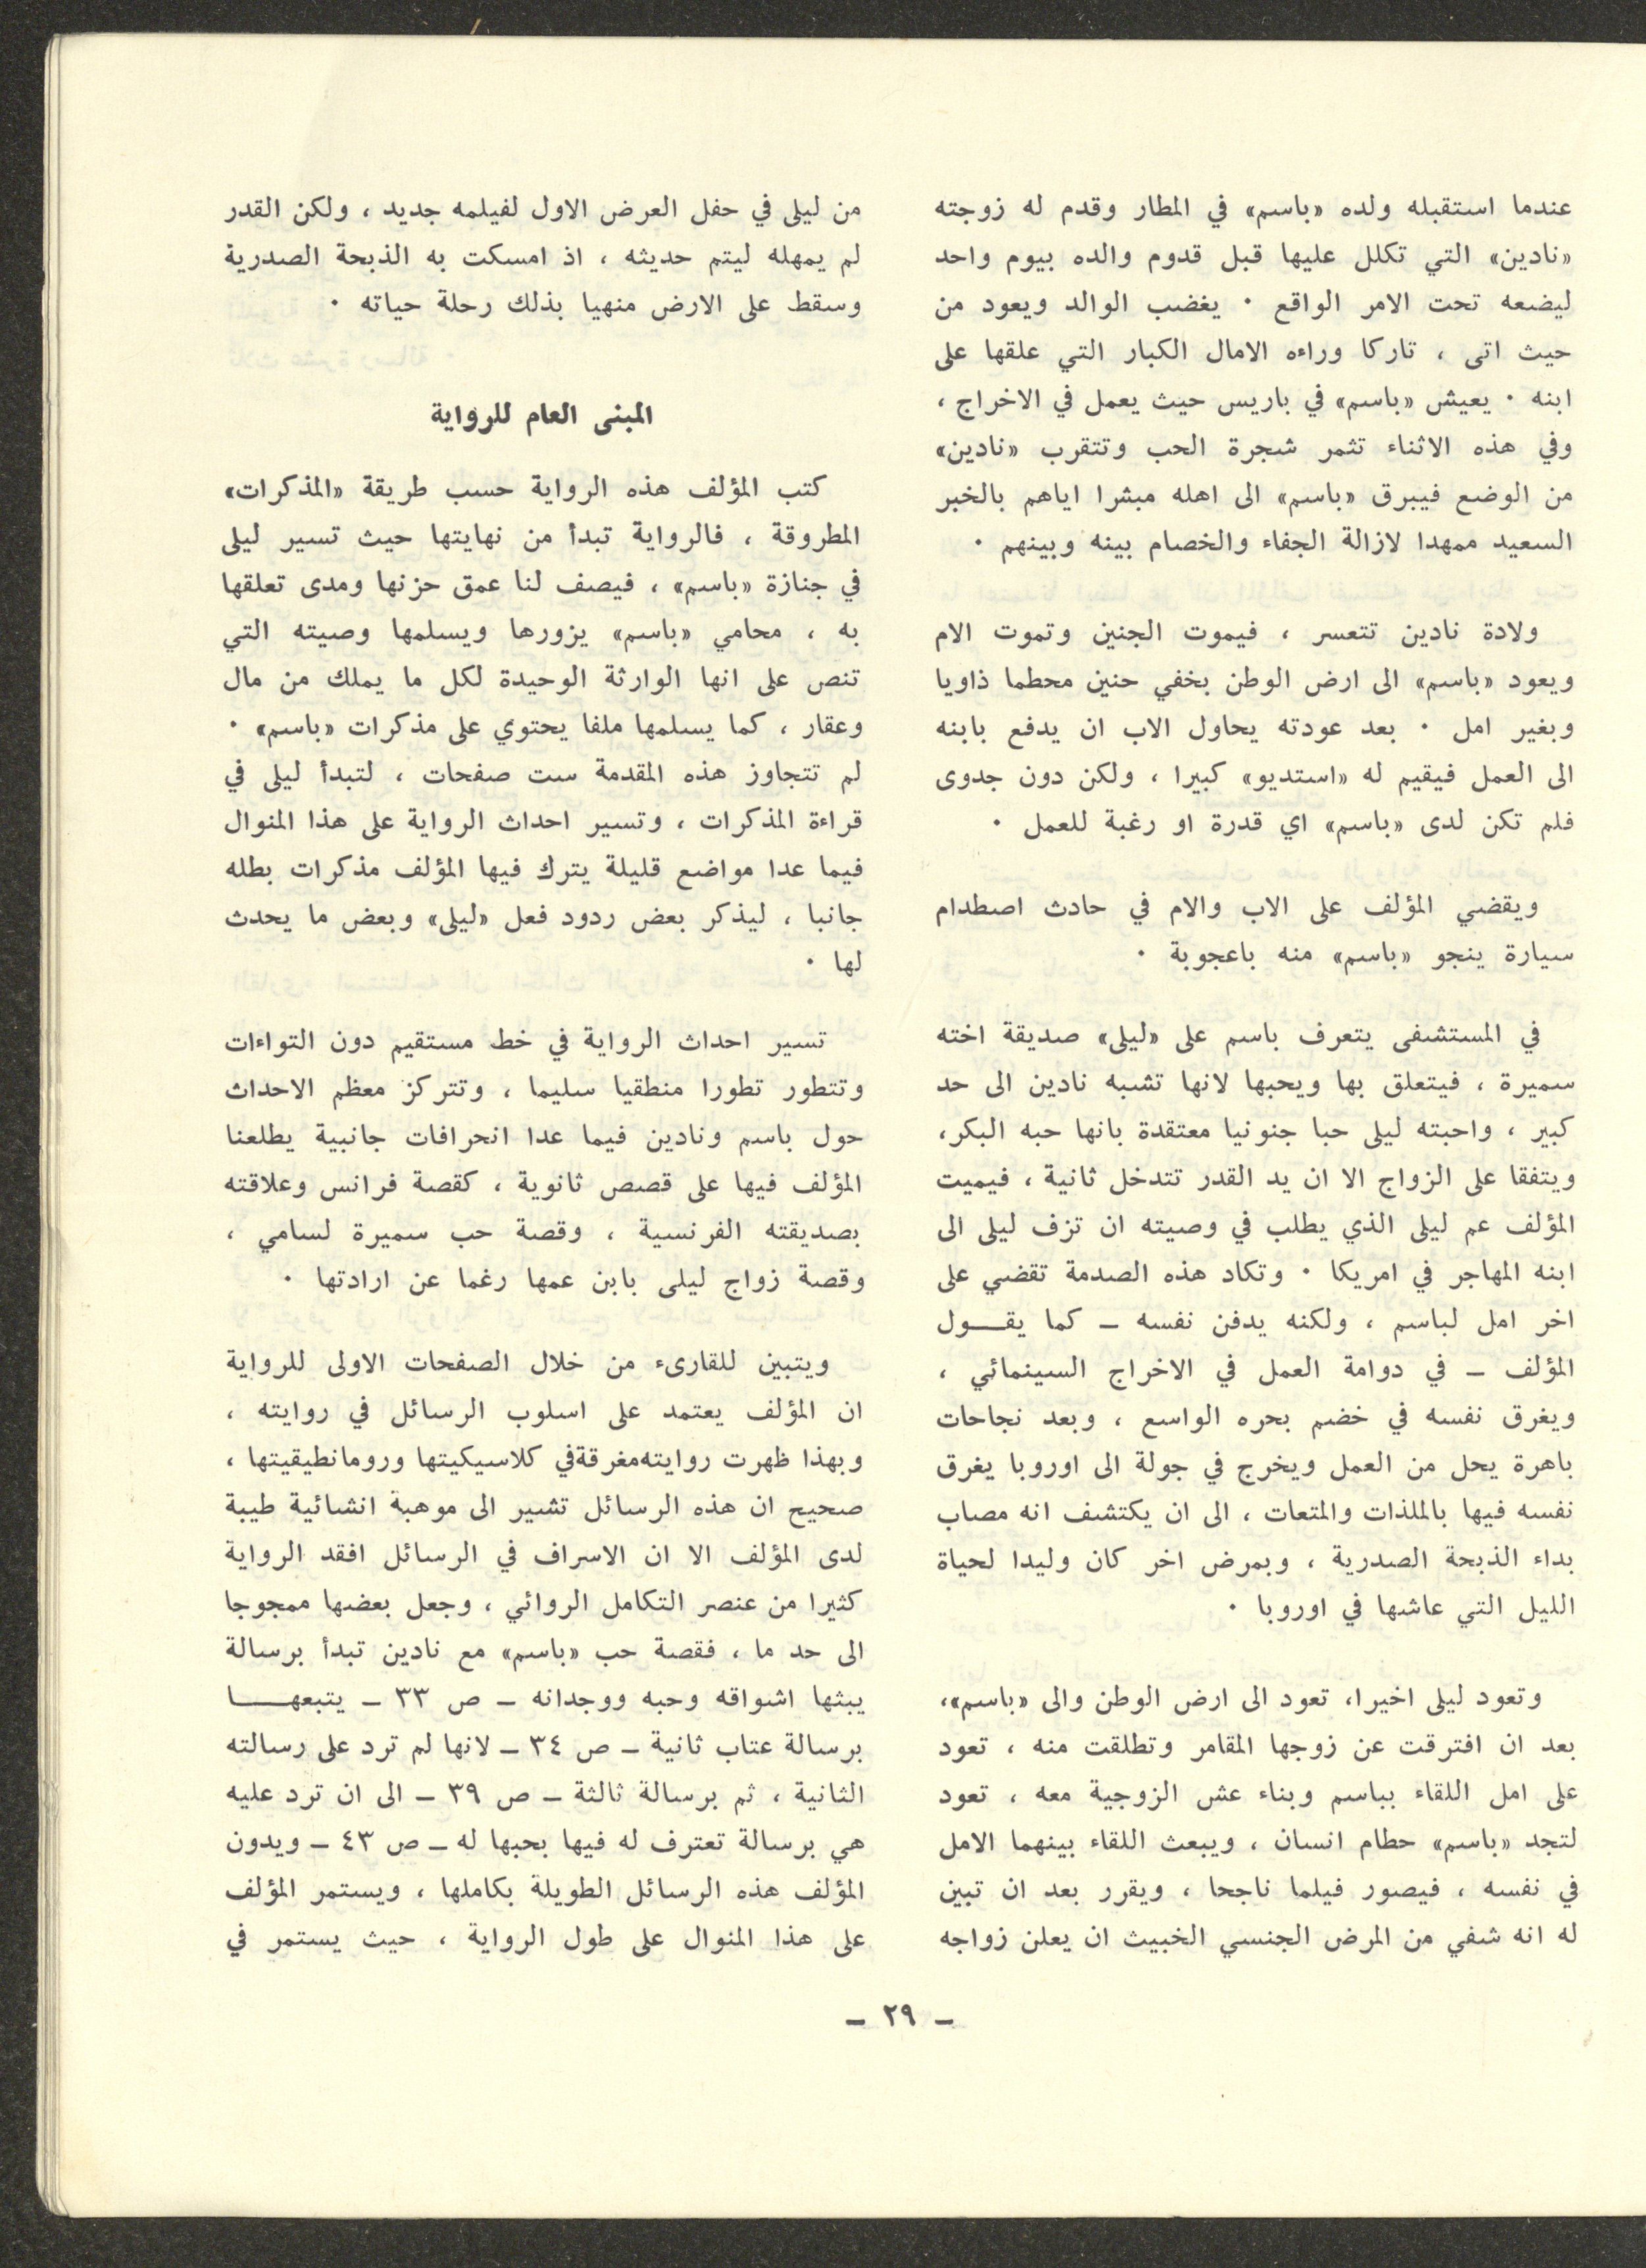 عندما استقبله ولده «باسم» في المطار وقدم له زوجته
«نادين» التي تكلل عليها قبل قدوم والده بيوم واحد
ليضعه تحت الامر الواقع ٠ يغضب الوالد ويعود من
حيث اتى ، تاركا وراءه الامال الكبار التي علقها على
ابنه ٠ يعيش «باسم» في باريس حيث يعمل في الاخراج ،
وفي هذه الاثناء تثمر شجرة الحب وتتقرب «نادين»
من الوضع فيبرق «باسم» الى اهله مبشرا اياهم بالخبر
السعيد ممهدا لازالة الجفاء والخصام بينه وبينهم ٠
ولادة نادين تتعسر ، فيموت الجنين وتموت الام
ويعود «باسم» الى ارض الوطن بخفي حنين محطما ذاويا
وبغير امل ٠ بعد عودته يحاول الاب ان يدفع بابنه
الى العمل فيقيم له «استديو» كبيرا ، ولكن دون جدوى
فلم تكن لدى «باسم» اي قدرة او رغبة للعمل ٠
ويقضي المؤلف على الاب والام في حادث اصطدام
سيارة ينجو «باسم» منه باعجوبة ٠
في المستشفى يتعرف باسم على «ليلى» صديقة اخته
سميرة ، فيتعلق بها ويحبها لانها تشبه نادين الى حد
كبير ، واحبته ليلى حبا جنونيا معتقدة بانها حبه البكر،
ويتفقا على الزواج الا ان يد القدر تتدخل ثانية ، فيميت
المؤلف عم ليلى الذي يطلب في وصيته ان تزف ليلى الى
ابنه المهاجر في امريكا ٠ وتكاد هذه الصدمة تقضي على
اخر امل لباسم ، ولكنه يدفن نفسه ــ كما يقـــول
المؤلف ــ في دوامة العمل في الاخراج السينمائي ،
ويغرق نفسه في خضم بحره الواسع ، وبعد نجاحات
باهرة يحل من العمل ويخرج في جولة الى اوروبا يغرق
نفسه فيها بالملذات والمتعات ، الى ان يكتشف انه مصاب
بداء الذبحة الصدرية ، وبمرض اخر كان وليدا لحياة
الليل التي عاشها في اوروبا ٠
وتعود ليلى اخيرا، تعود الى ارض الوطن والى «باسم»،
بعد ان افترقت عن زوجها المقامر وتطلقت منه ، تعود
على امل اللقاء بباسم وبناء عش الزوجية معه ، تعود
لتجد «باسم» حطام انسان ، ويبعث اللقاء بينهما الامل
في نفسه ، فيصور فيلما ناجحا ، ويقرر بعد ان تبين
له انه شفي من المرض الجنسي الخبيث ان يعلن زواجه
من ليلى في حفل العرض الاول لفيلمه جديد ، ولكن القدر
لم يمهله ليتم حديثه ، اذ امسكت به الذبحة الصدرية
وسقط على الارض منهيا بذلك رحلة حياته ٠
المبنى العام للرواية
كتب المؤلف هذه الرواية حسب طريقة «المذكرات»
المطروقة ، فالرواية تبدأ من نهايتها حيث تسير ليلى
في جنازة «باسم» ، فيصف لنا عمق حزنها ومدى تعلقها
به ، محامي «باسم» يزورها ويسلمها وصيته التي
تنص على انها الوارثة الوحيدة لكل ما يملك من مال
وعقار ، كما يسلمها ملفا يحتوي على مذكرات «باسم» ٠
لم تتجاوز هذه المقدمة ست صفحات ، لتبدأ ليلى في
قراءة المذكرات ، وتسير احداث الرواية على هذا المنوال
فيما عدا مواضع قليلة يترك فيها المؤلف مذكرات بطله
جانبا ، ليذكر بعض ردود فعل «ليلى» وبعض ما يحدث
لها ٠
تسير احداث الرواية في خط مستقيم دون التواءات
وتتطور تطورا منطقيا سليما ، وتتركز معظم الاحداث
حول باسم ونادين فيما عدا انحرافات جانبية يطلعنا
المؤلف فيها على قصص ثانوية ، كقصة فرانس وعلاقته
بصديقته الفرنسية ، وقصة حب سميرة لسامي ،
وقصة زواج ليلى بابن عمها رغما عن ارادتها ٠
ويتبين للقارىء من خلال الصفحات الاولى للرواية
ان المؤلف يعتمد على اسلوب الرسائل في روايته ،
وبهذا ظهرت روايته مغرقة في كلاسيكيتها ورومانطيقيتها ،
صحيح ان هذه الرسائل تشير الى موهبة انشائية طيبة
لدى المؤلف الا ان الاسراف في الرسائل افقد الرواية
كثيرا من عنصر التكامل الروائي ، وجعل بعضها ممجوجا
الى حد ما ، فقصة حب «باسم» مع نادين تبدأ برسالة
يبثها اشواقه وحبه ووجدانه ــ ص ٣٣ ــ يتبعهـــا
برسالة عتاب ثانية ــ ص ٣٤ ــ لانها لم ترد على رسالته
الثانية ، ثم برسالة ثالثة ــ ص ٣٩ ــ الى ان ترد عليه
هي برسالة تعترف له فيها بحبها له ــ ص ٤٣ ــ ويدون
المؤلف هذه الرسائل الطويلة بكاملها ، ويستمر المؤلف
على هذا المنوال على طول الرواية ، حيث يستمر في
ــ ٢٩ ــ